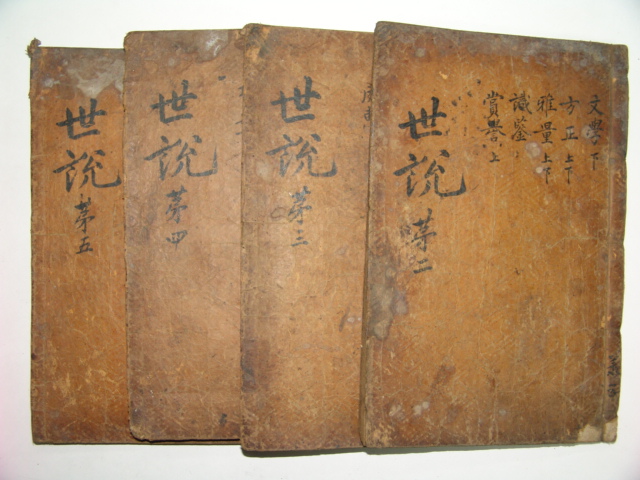 文學下
方正上下
雅量上下
識鑒
賞譽上
世說苐二
世說苐三
世說苐四
世說苐五